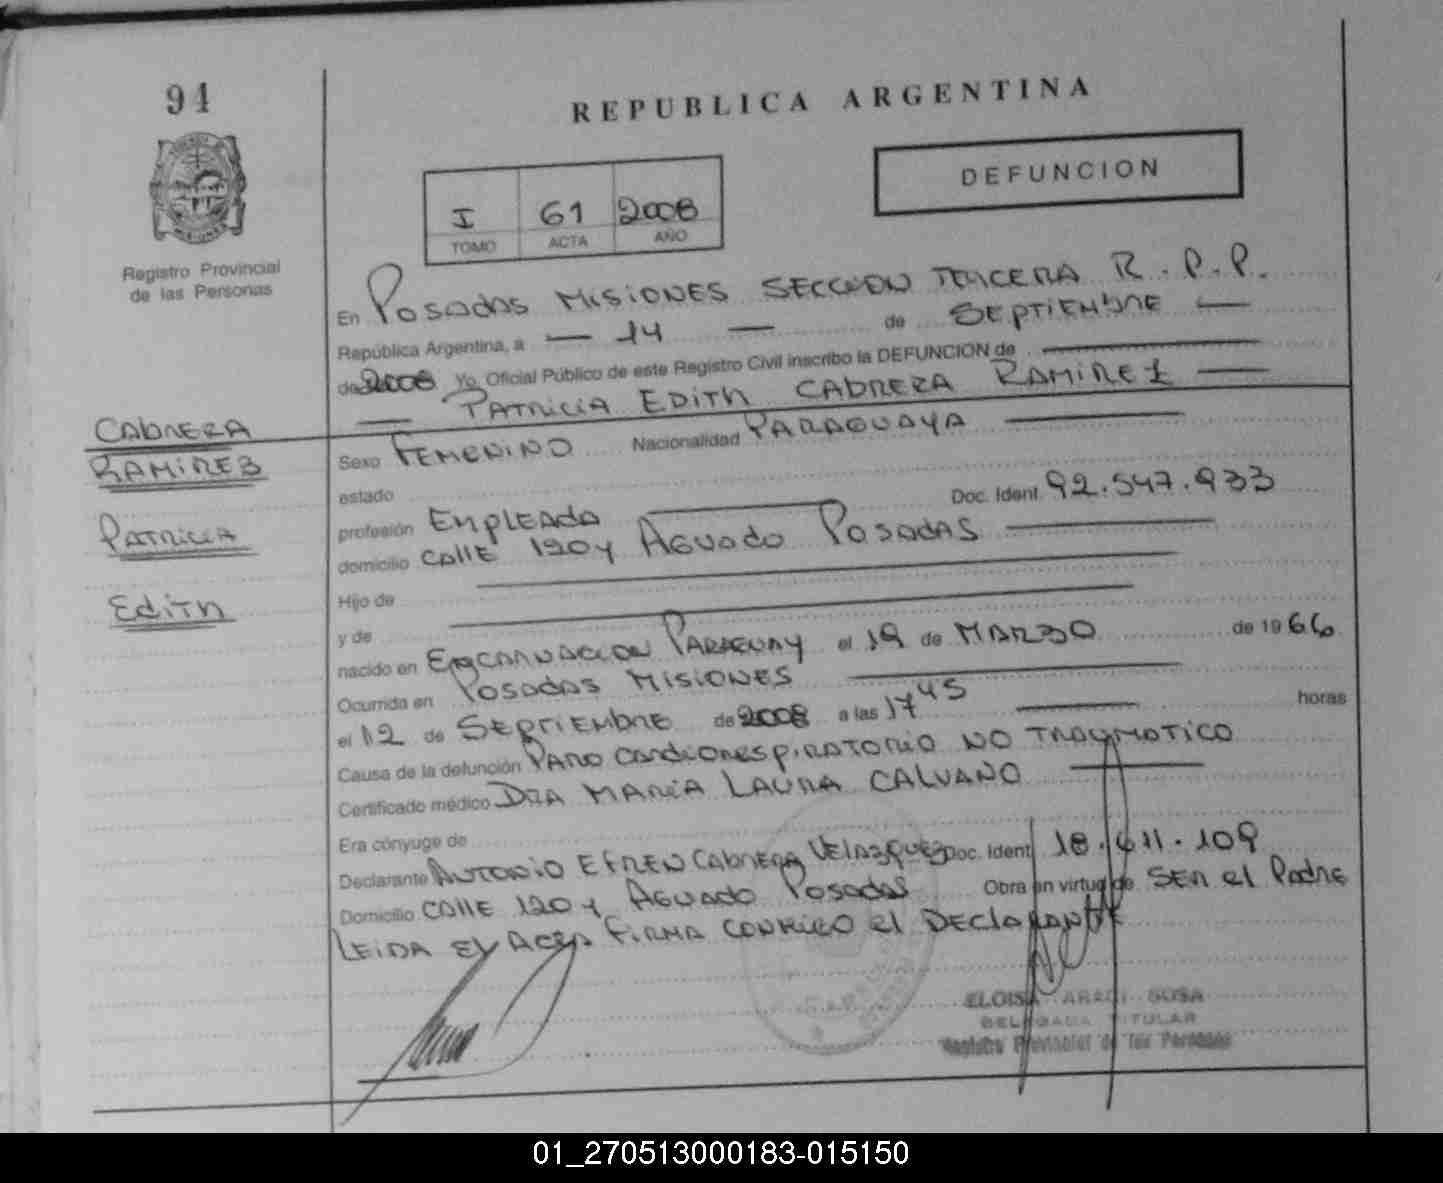 94
REPUBLICA ARGENTINA
DEFUNCION
I 61 2008
TOMO ACTA AÑO
Registro Provincial
de las Personas
En Posadas Misiones Seccion Tercera R.P.P.
República Argentina, a — 14 — de Septiembre —
de 2008 Yo, Oficial Público de este Registro Civil inscribo la DEFUNCION de
— Patricia Edith Cabrera Ramirez —
Cabrera
Ramirez
Patricia
Edith
Sexo Femenino Nacionalidad Paraguaya
estado
profesión Empleada Doc. Ident. 92.547.933
domicilio calle 120 y Aguado Posadas
Hijo de
y de
nacido en Encarnacion Paraguay el 19 de Marzo de 1966
Ocurrida en Posadas Misiones
el 12 de Septiembre de 2008 a las 17 45 horas
Causa de la defunción Paro cardiorespiratorio no traumatico
Certificado médico Dra Maria Laura Calvano
Era cónyuge de
Declarante Antonio Efren Cabrera Velazquez Doc. Ident. 18.411.109
Domicilio calle 120 y Aguado Posadas Obra en virtud de ser el Padre
Leida el Acta firma conmigo el Declarante
ELOISA ARACI SOSA
DELEGADA TITULAR
Registro Provincial de las Personas
01_270513000183-015150